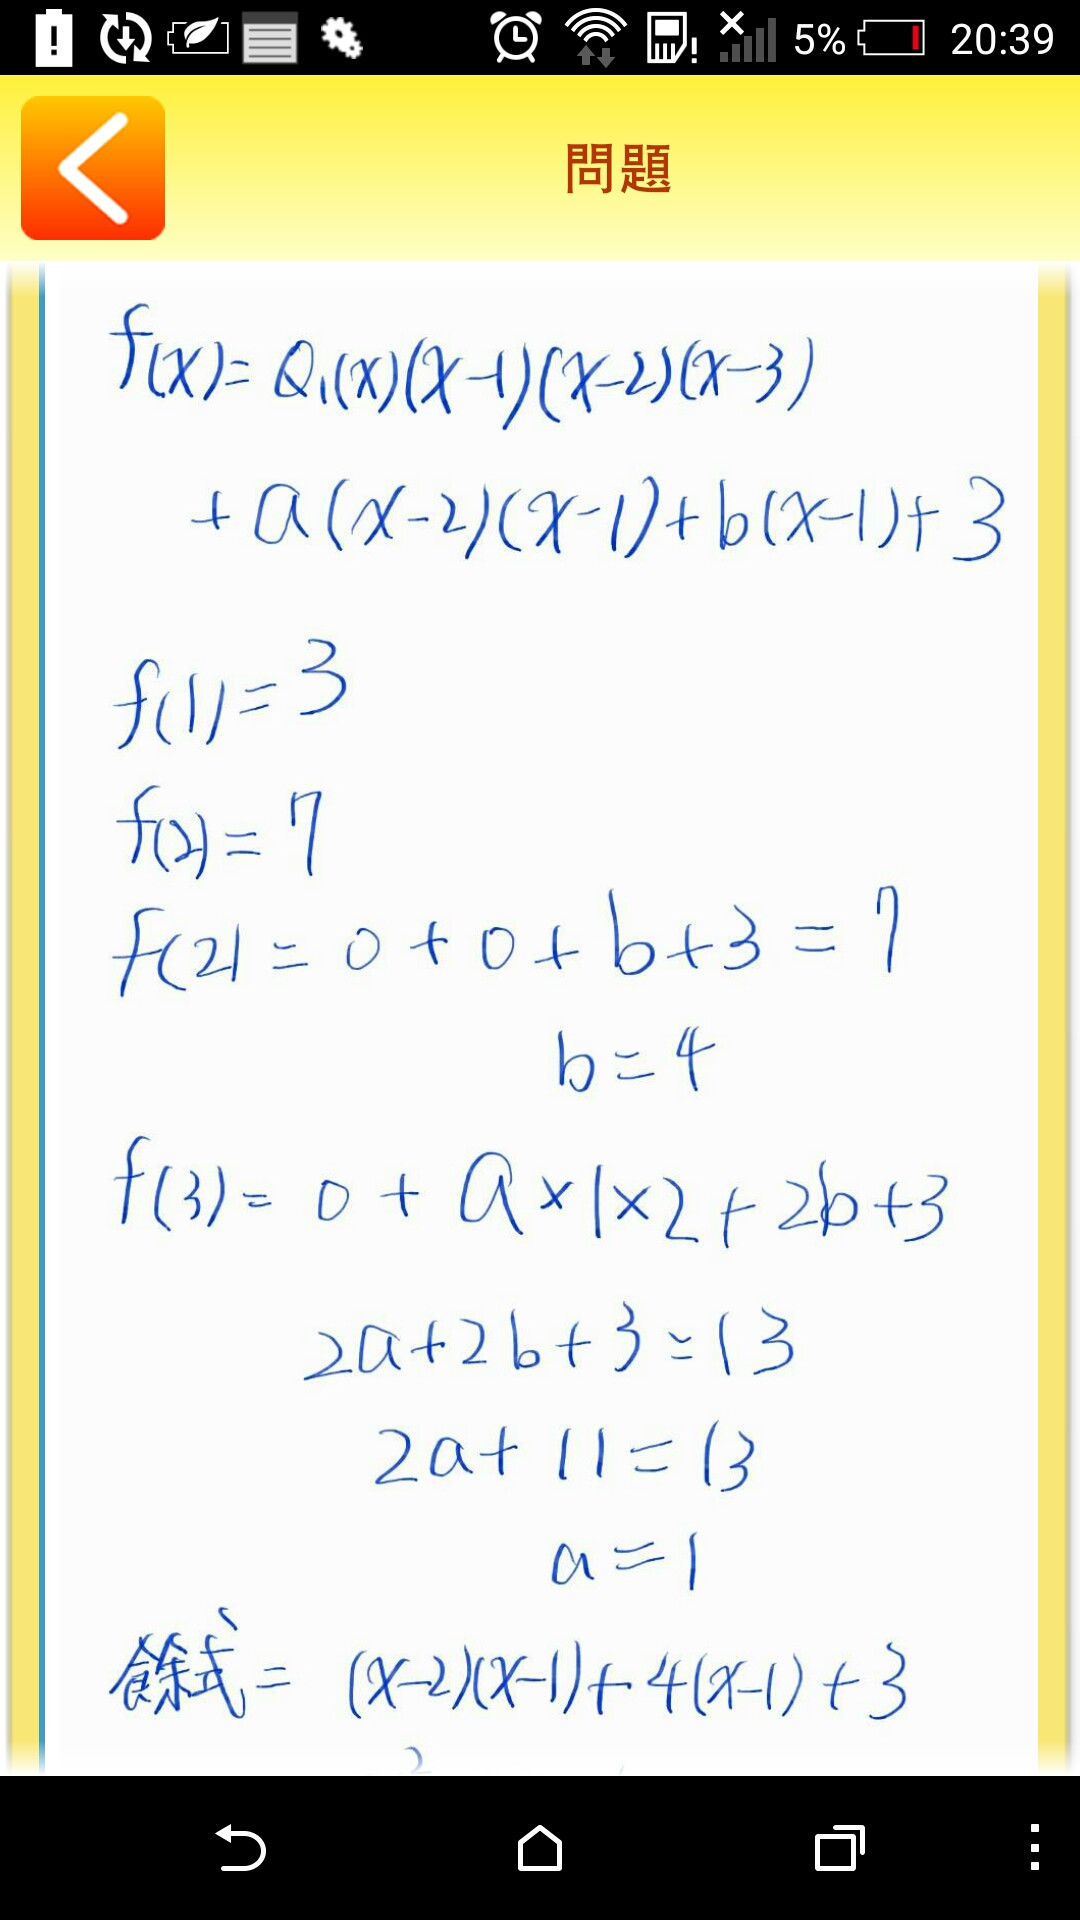 5% 20:39
問題
f(x)= Q₁(x)(x-1)(x-2)(x-3)
+a(x-2)(x-1)+b(x-1)+3
f(1)=3
f(2)=7
f(2)=0+0+b+3=7
b=4
f(3)=0+a×1×2+2b+3
2a+2b+3=13
2a+11=13
a=1
餘式=(x-2)(x-1)+4(x-1)+3